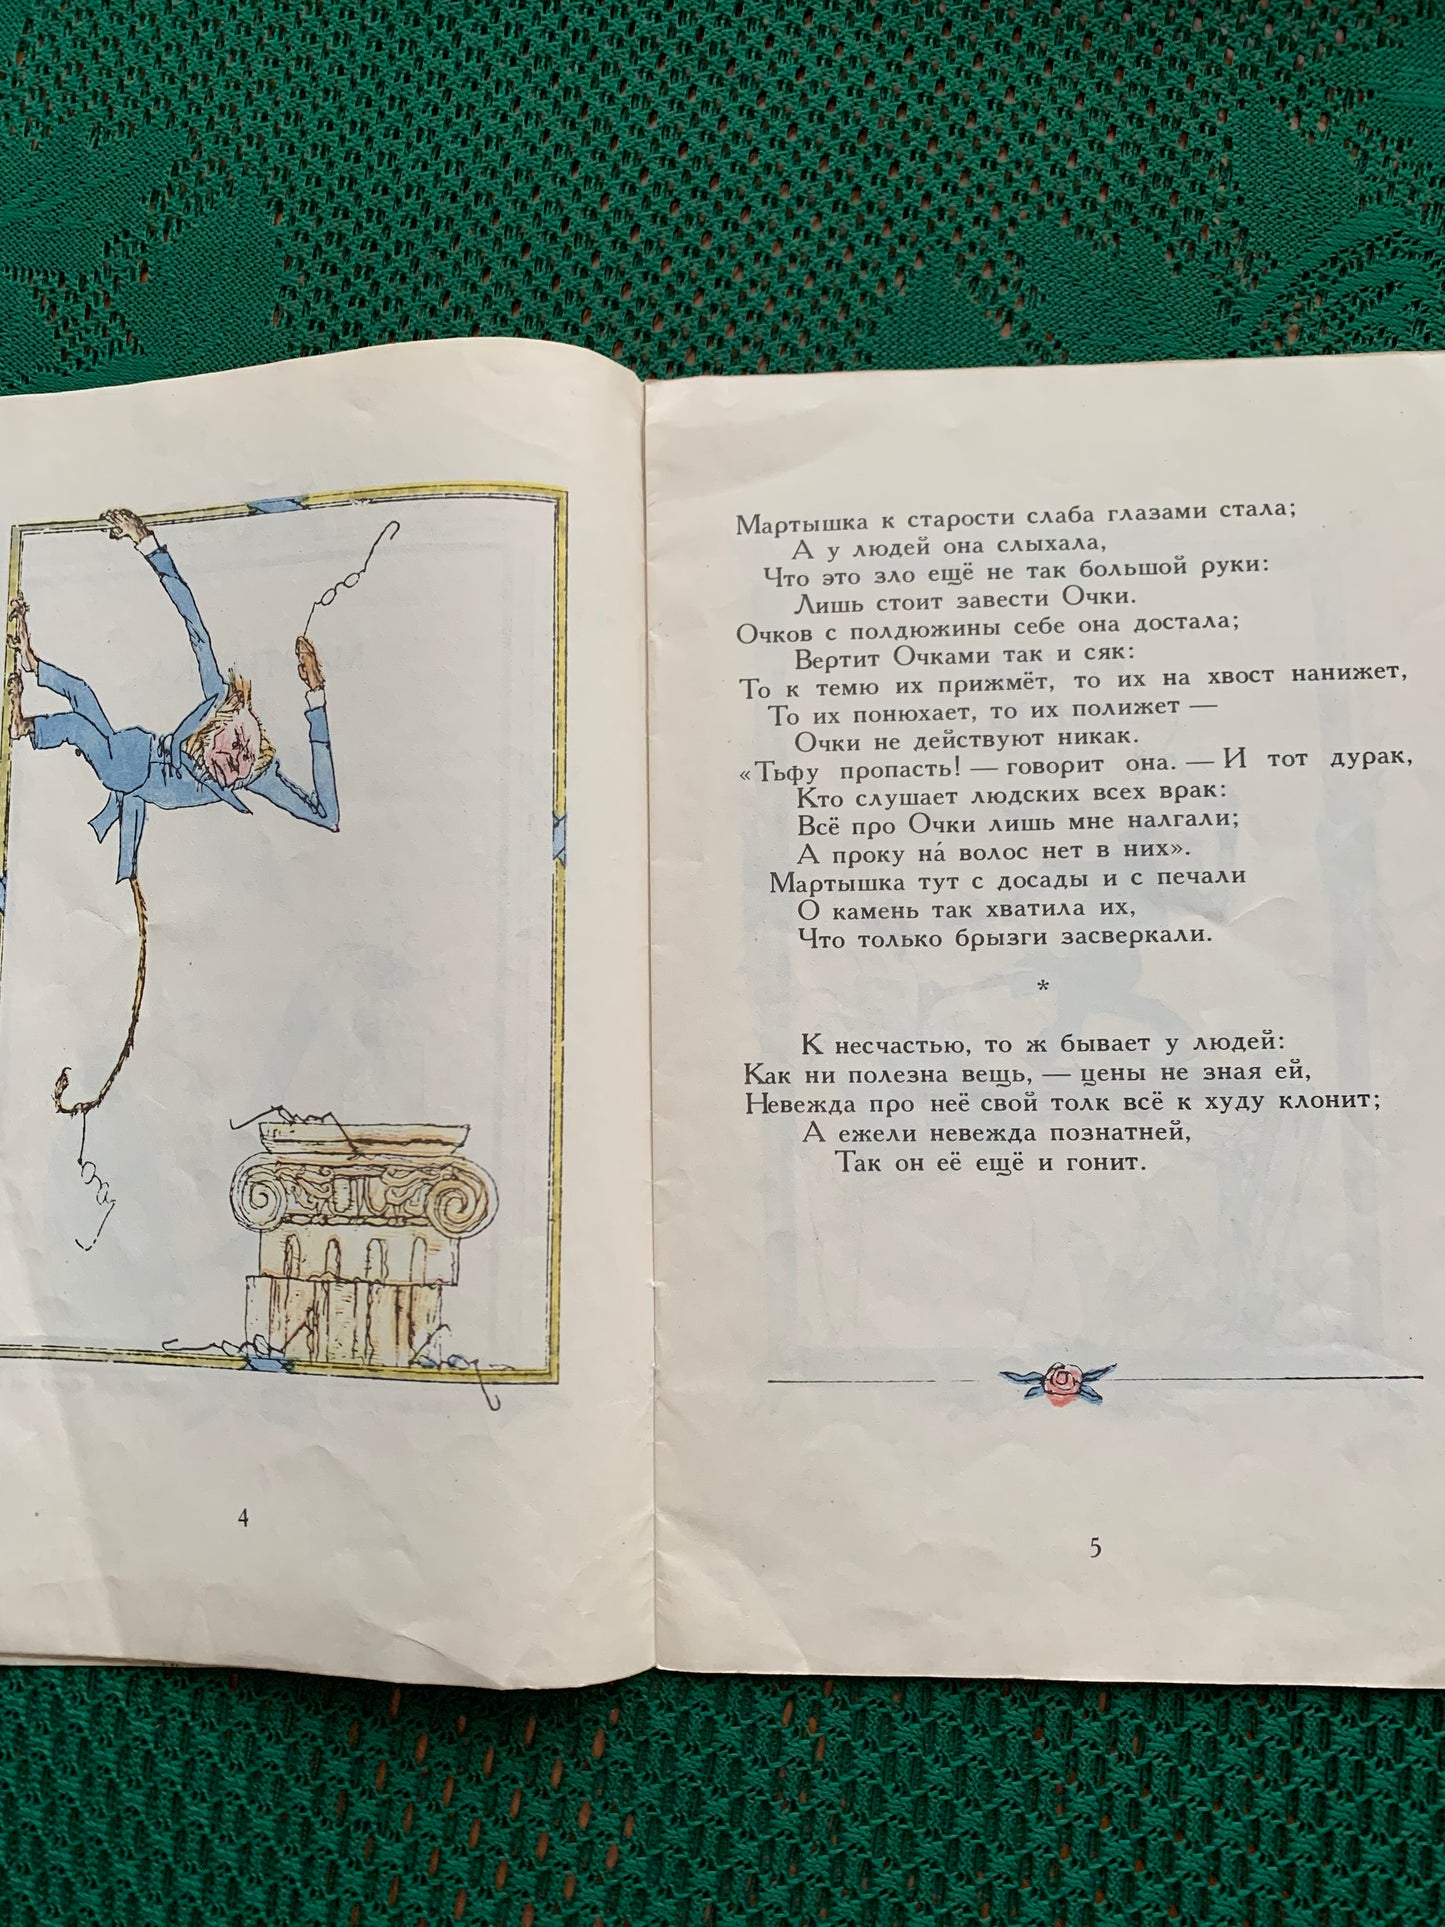 Мартышка к старости слаба глазами стала;
А у людей она слыхала,
Что это зло ещё не так большой руки:
Лишь стоит завести Очки.
Очков с полдюжины себе она достала;
Вертит Очками так и сяк:
То к темю их прижмёт, то их на хвост нанижет,
То их понюхает, то их полижет —
Очки не действуют никак.
«Тьфу пропасть! — говорит она. — И тот дурак,
Кто слушает людских всех врак:
Всё про Очки лишь мне налгали;
А проку на́ волос нет в них».
Мартышка тут с досады и с печали
О камень так хватила их,
Что только брызги засверкали.
*
К несчастью, то ж бывает у людей:
Как ни полезна вещь, — цены не зная ей,
Невежда про неё свой толк всё к худу клонит;
А ежели невежда познатней,
Так он её ещё и гонит.
4
5